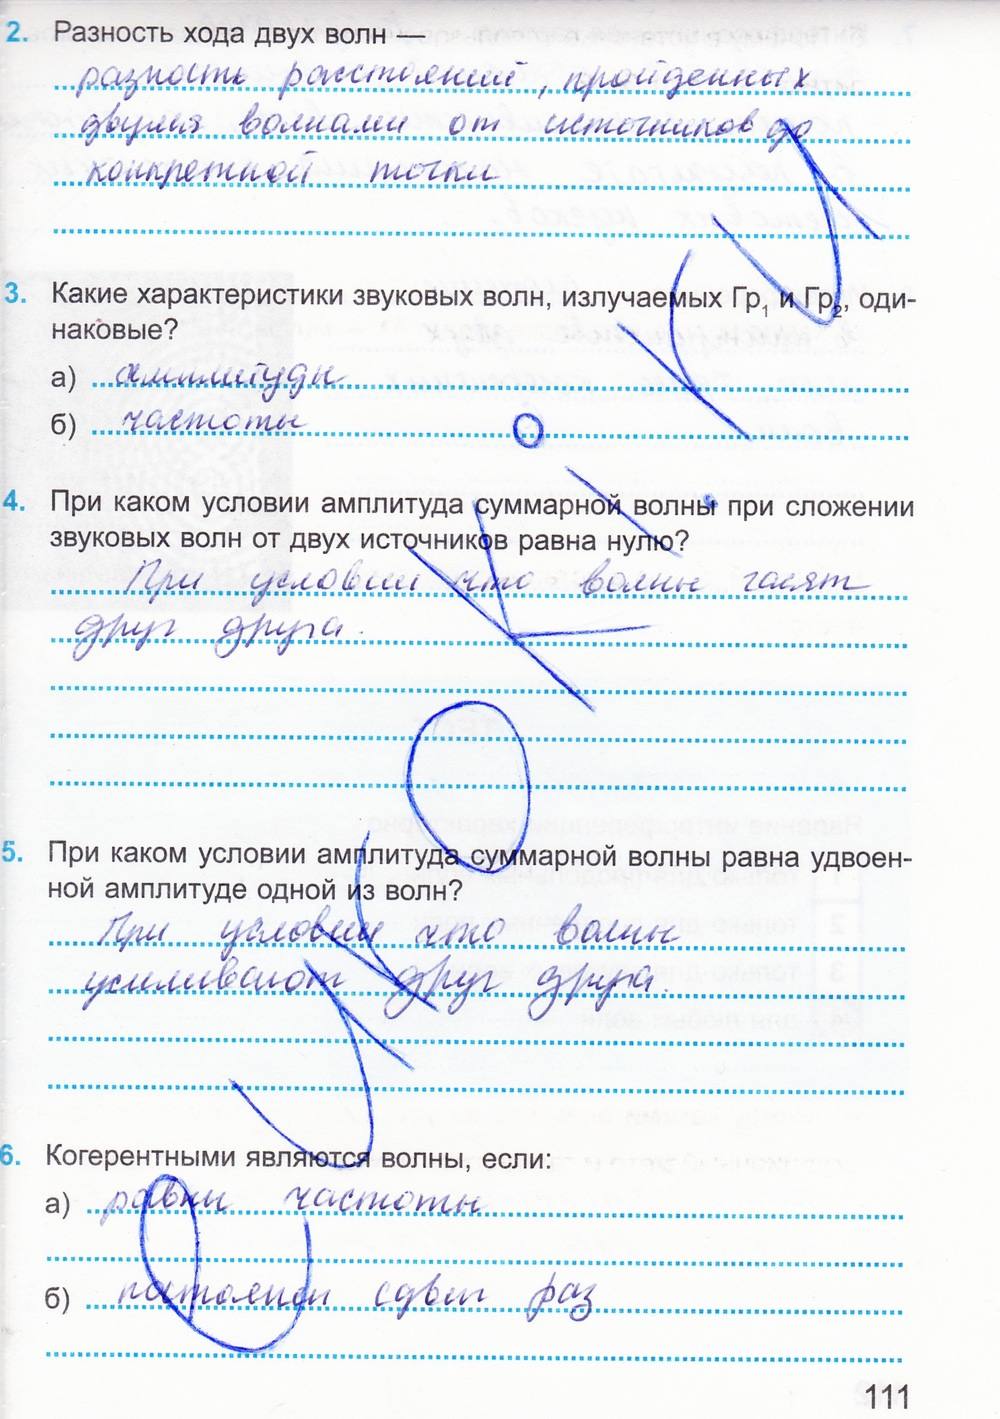 2. Разность хода двух волн —
разность расстояний, пройденных
двумя волнами от источников до
конкретной точки
3. Какие характеристики звуковых волн, излучаемых Гр1 и Гр2, оди-
наковые?
а) амплитуды
б) частоты
4. При каком условии амплитуда суммарной волны при сложении
звуковых волн от двух источников равна нулю?
При условии что волны гасят
друг друга.
5. При каком условии амплитуда суммарной волны равна удвоен-
ной амплитуде одной из волн?
При условии что волны
усиливают друг друга.
6. Когерентными являются волны, если:
а) равны частоты
б) постоянен сдвиг фаз
111